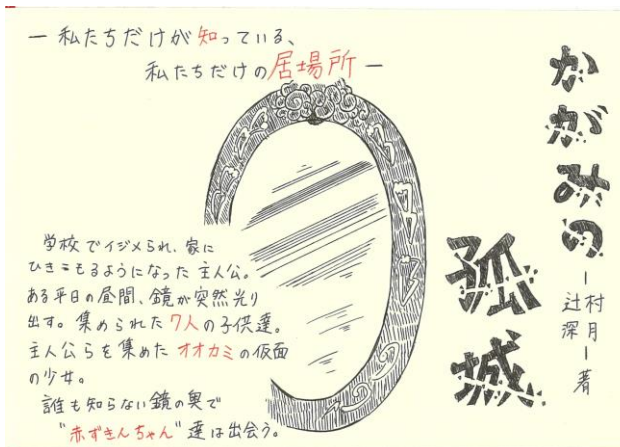 ― 私たちだけが知っている、
私たちだけの居場所 ―
かがみの
孤城
―辻村深月―著
学校でイジメられ、家に
ひきこもるようになった主人公。
ある平日の昼間、鏡が突然光り
出す。集められた7人の子供達。
主人公らを集めたオオカミの仮面
の少女。
誰も知らない鏡の奥で
"赤ずきんちゃん"達は出会う。